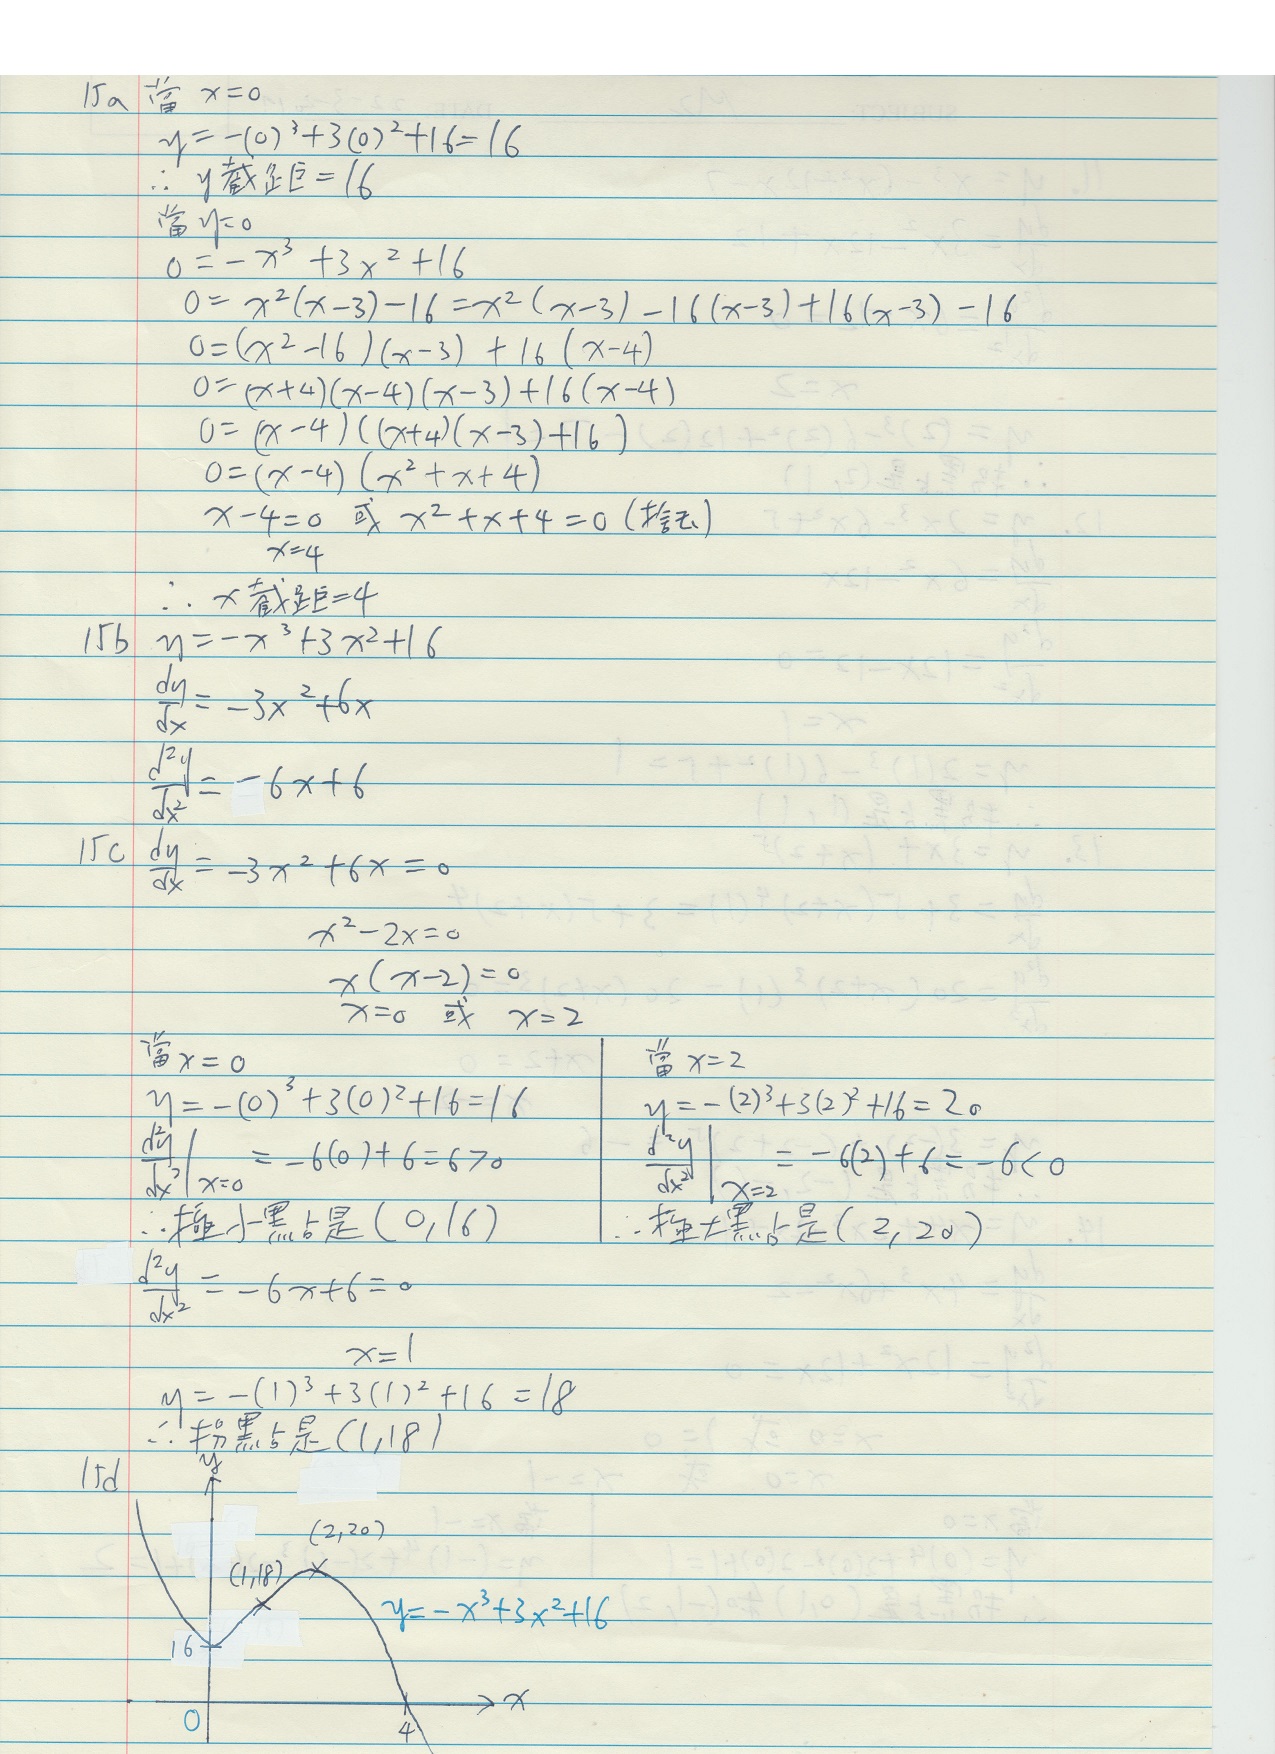 15a 當 x=0
y=-(0)³+3(0)²+16=16
∴ y截距=16
當 y=0
0=-x³+3x²+16
0=x²(x-3)-16=x²(x-3)-16(x-3)+16(x-3)-16
0=(x²-16)(x-3)+16(x-4)
0=(x+4)(x-4)(x-3)+16(x-4)
0=(x-4)((x+4)(x-3)+16)
0=(x-4)(x²+x+4)
x-4=0 或 x²+x+4=0 (捨去)
x=4
∴ x截距=4
15b y=-x³+3x²+16
dy/dx=-3x²+6x
d²y/dx²=-6x+6
15c dy/dx=-3x²+6x=0
x²-2x=0
x(x-2)=0
x=0 或 x=2
當x=0
y=-(0)³+3(0)²+16=16
d²y/dx²|x=0 =-6(0)+6=6>0
∴極小點是(0,16)
當 x=2
y=-(2)³+3(2)²+16=20
d²y/dx²|x=2 =-6(2)+6=-6<0
∴極大點是(2,20)
d²y/dx²=-6x+6=0
x=1
y=-(1)³+3(1)²+16=18
∴拐點是(1,18)
15d
y
(2,20)
(1,18)
y=-x³+3x²+16
16
x
0
4